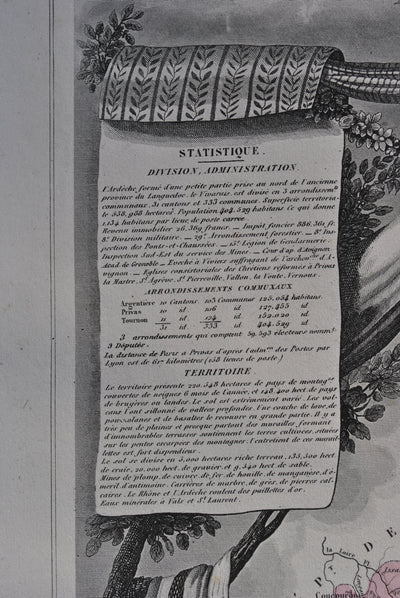 STATISTIQUE.
DIVISION, ADMINISTRATION.
L'Ardèche, formé d'une petite partie prise au nord de l'ancienne
province du Languedoc, le Vivarais, est divisé en 3 arrondissem.ts
communaux, 31 cantons et 333 communes. Superficie territoria.
le 538,988 hectares. Population 404,529 habitans Ce qui donne
1,134 habitans par lieue de poste carrée.
Revenu immobilier 26,369 francs. — Impôt foncier 886,361 fr.
8.e Division militaire. — 29.e Arrondissement forestier. — 8.e Ins
pection des Ponts-et-Chaussées. — 15.e Légion de Gendarmerie.
Inspection Sud-Est du service des Mines. — Cour d'ap. d'Avignon.
Acad. de Grenoble. — Evêché à Viviers suffragant de l'archev.é d'A-
vignon. — Eglises consistoriales des Chrétiens réformés à Privas
la Mastre, S.t Agrève, S.t Pierreville, Vallon, la Voute, Vernoux.
ARRONDISSEMENTS COMMUNAUX
Argentière 10 Cantons 103 Communes 125,054 habitans
Privas 10 id. 106 id. 127,455 id.
Tournon 11 id. 124 id. 152,020 id.
31 id. 333 id. 404,529 id.
3 arrondissements qui comptent 59,593 électeurs nomm.t
9 Députés.
La distance de Paris à Privas d'après l'adm.on des Postes par
Lyon est de 617 kilomètres (158 lieues de poste)
TERRITOIRE.
Le territoire présente 220,548 hectares de pays de montag.nes
couvertes de neiges 6 mois de l'année, et 148,400 hect de pays
de bruyères ou landes. Le sol est extrèmement varié. Les vol-
cans l'ont sillonné de vallées profondes. Une couche de lave, de
pouzzolane et de basaltes le recouvre en grande partie. Il y a
très peu de plaines et presque partout des murailles, formant
d'innombrables terrasses soutiennent les terres cultivées, situées
sur les pentes escarpées des montagnes: l'entretien de ces murail
lettes est fort dispendieux.
Le sol se divise en 5,000 hectares riche terreau, 133,500 hect
de craie, 20,000 hect. de gravier et 9,540 hect de sable.
Mines de plomb, de cuivre, de fer de houille, de manganèse, d'é-
mail d'antimoine. Carrières de marbre, de grès, de pierres cal-
caires. Le Rhône et l'Ardèche roulent des paillettes d'or.
Eaux minérales à Vals et S.t Laurent.
la Loire
P. DE
Coucouron